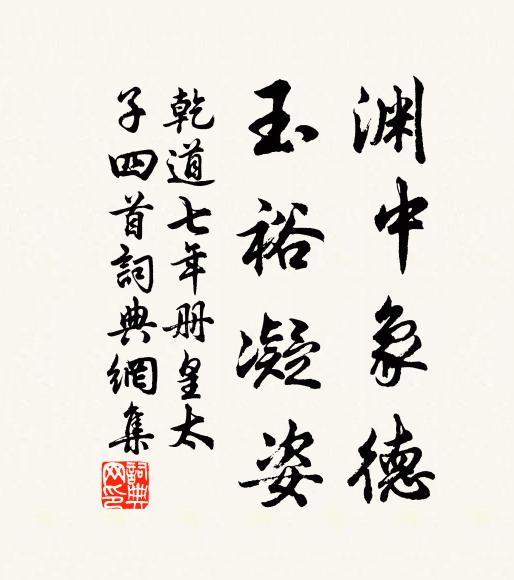 渊中象德
玉裕凝姿
乾道七年册皇太
子四首詞典網集
詞典
网印